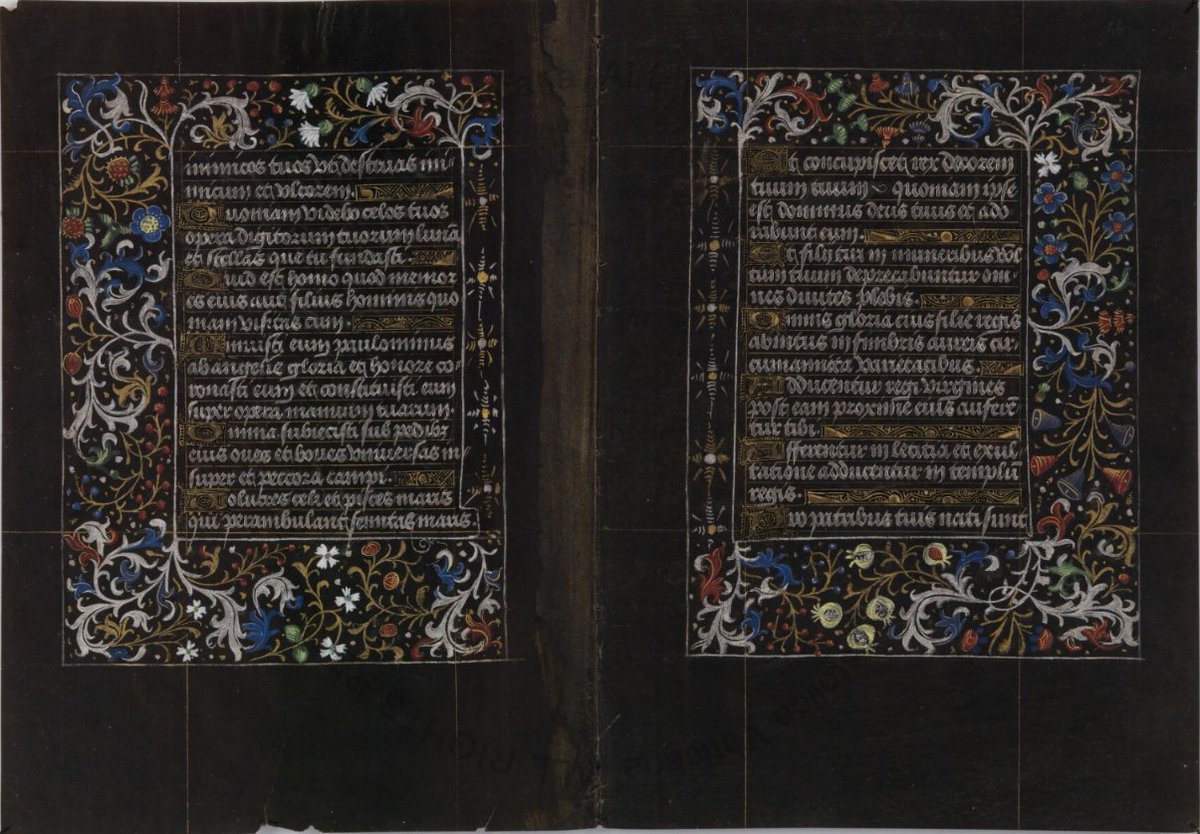 inimicos tuos vt destruas ini-
micum et vltorem.
Quoniam videbo celos tuos
opera digitorum tuorum lunā
et stellas que tu fundasti.
Quid est homo quod memor
es eius aut filius hominis quo
niam visitas eum.
Minuisti eum paulominus
ab angelis gloria et honore co-
ronasti eum et constituisti eum
super opera manuum tuarum.
Omnia subiecisti sub pedibꝫ
eius oues et boues vniuersas in-
super et peccora campi.
Volucres celi et pisces maris
qui perambulant semitas maris.
Et concupiscet rex decorem
tuum tuum quoniam ipse
est dominus deus tuus et ado
rabunt eum.
Et filie tiri in muneribus vol
tum tuum deprecabuntur om-
nes diuites plebis.
Omnis gloria eius filie regis
abintus in fimbriis aureis cir-
cumamicta varietatibus.
Adducentur regi virgines
post eam proxime eius aufferē
tur tibi.
Afferentur in leticia et exul
tatione adducentur in templū
regis.
Pro patribus tuis nati sunt